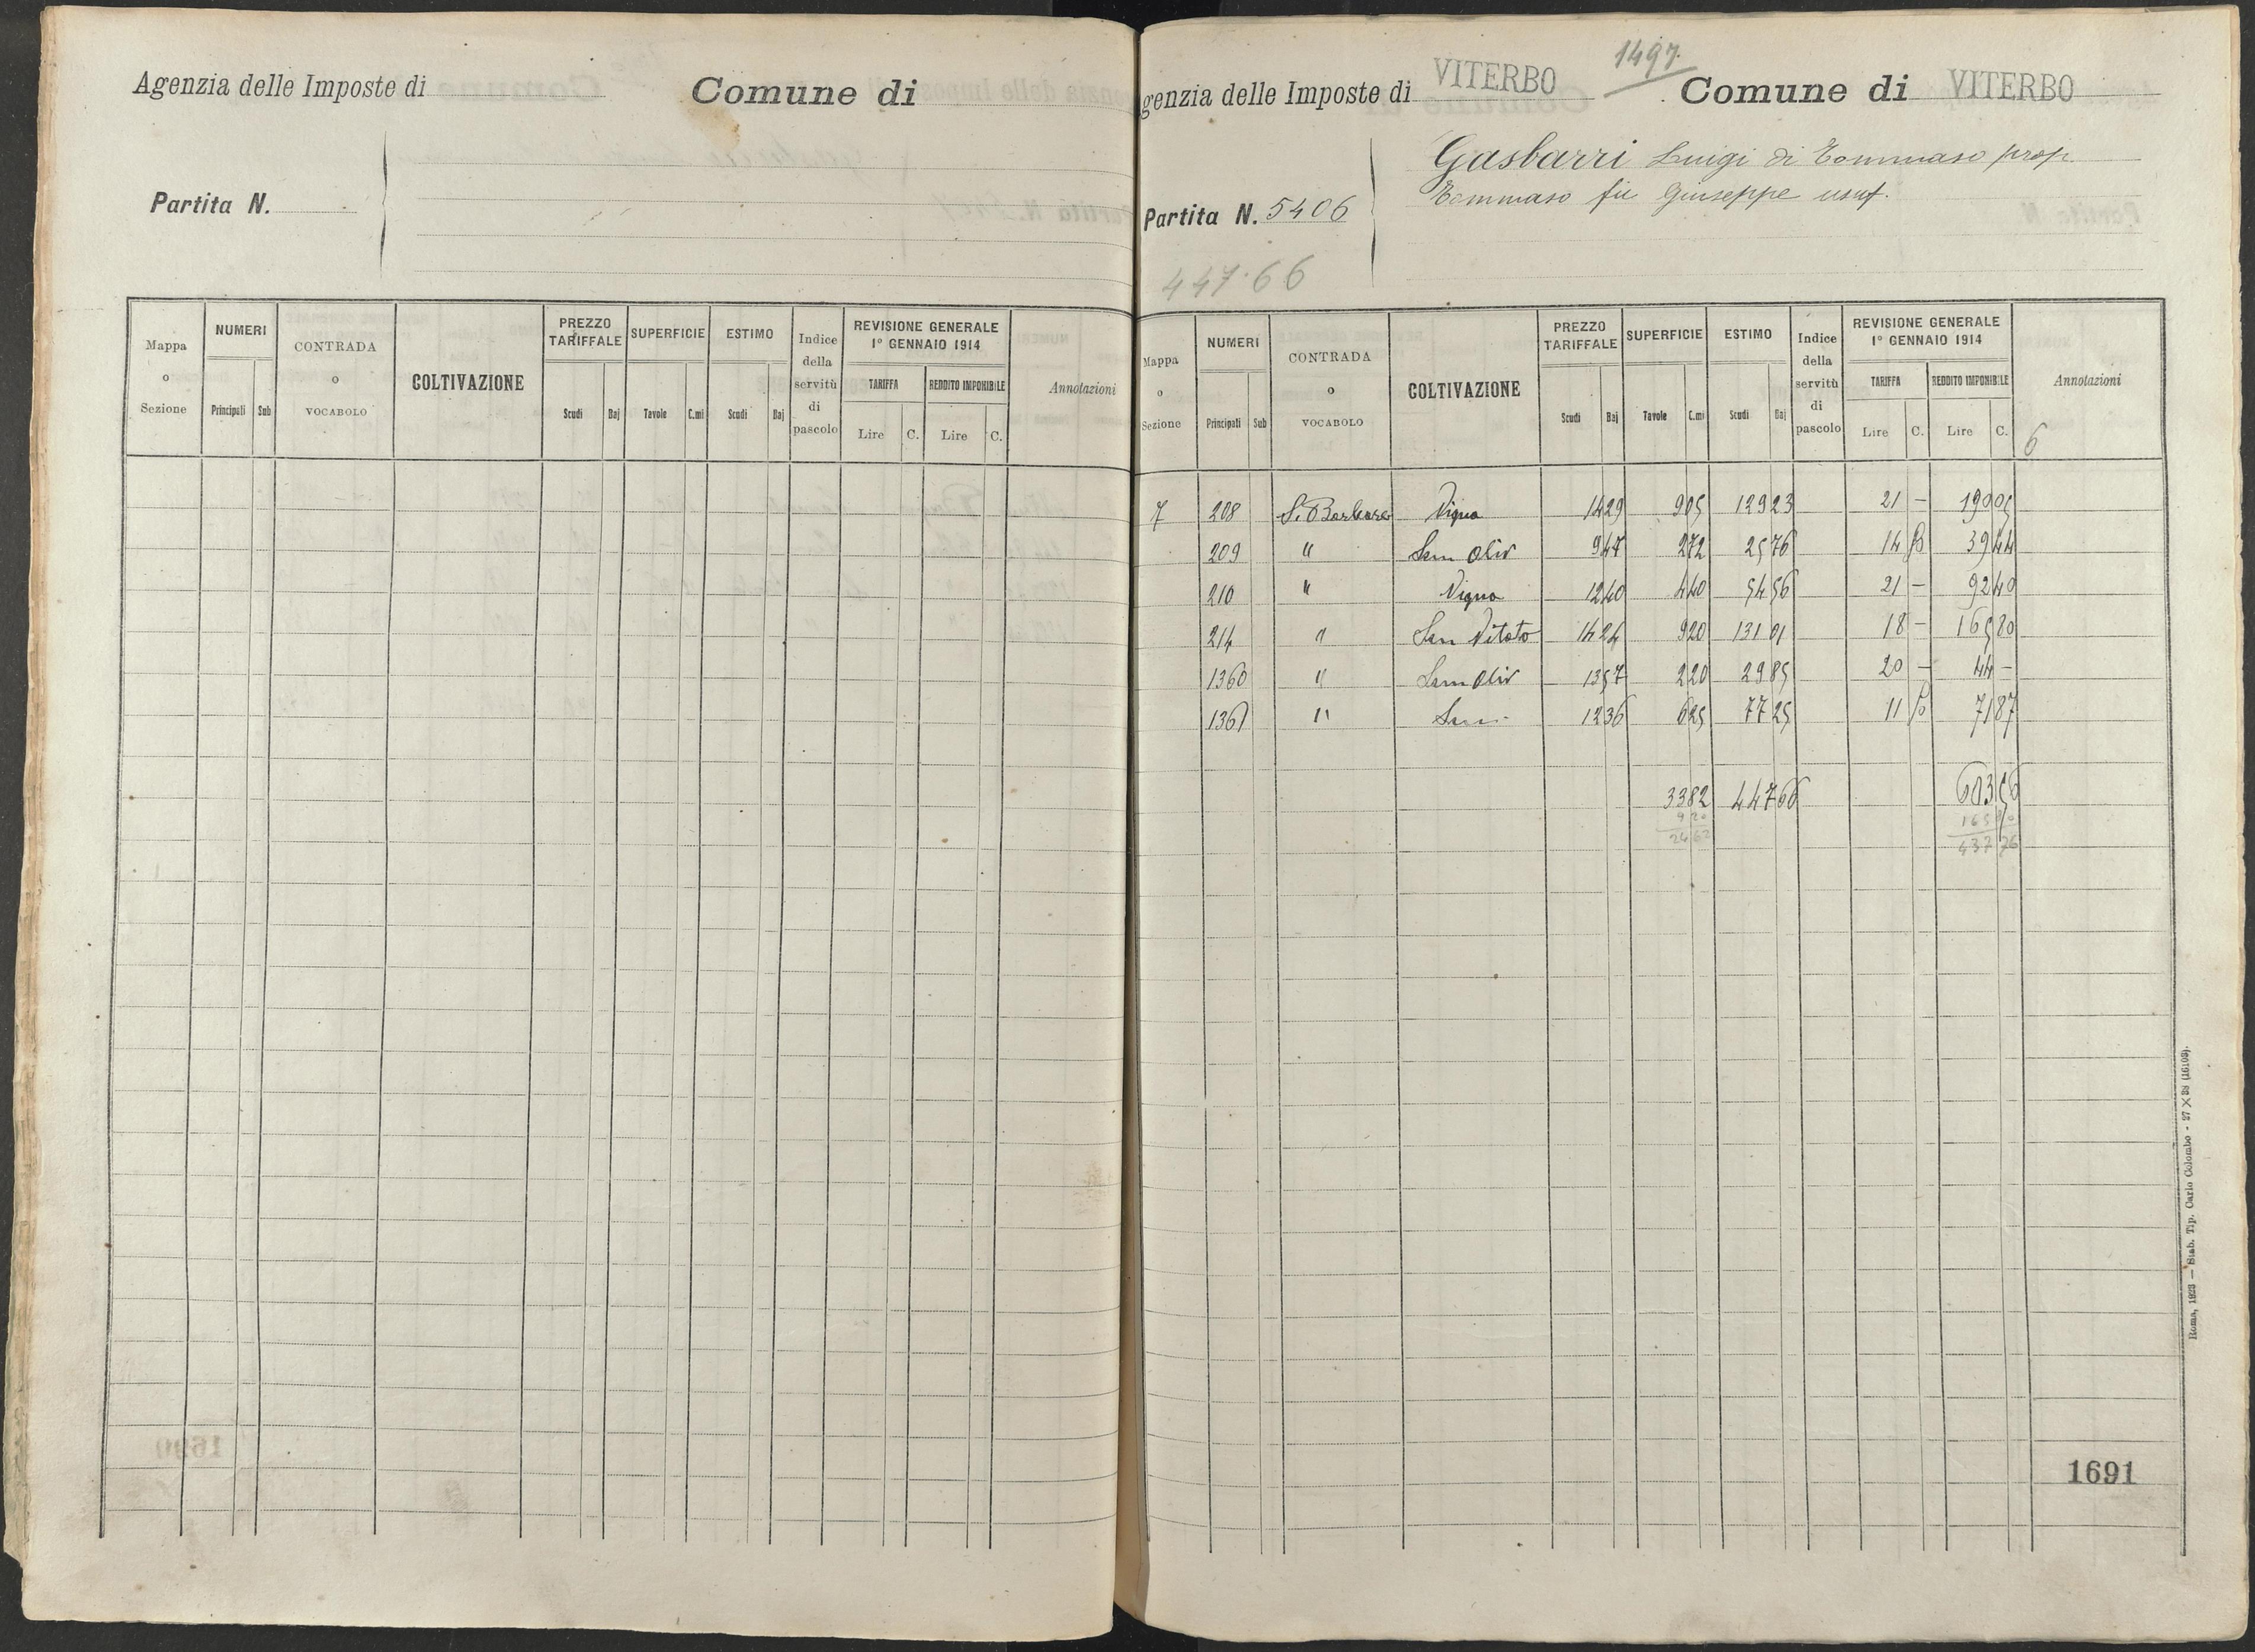 Agenzia delle Imposte di Comune di
Partita N.
Mappa o Sezione NUMERI Principali Sub CONTRADA o VOCABOLO COLTIVAZIONE PREZZO TARIFFALE Scudi Baj SUPERFICIE Tavole C.mi ESTIMO Scudi Baj Indice della servitù di pascolo REVISIONE GENERALE 1° GENNAIO 1914 TARIFFA Lire C. REDDITO IMPONIBILE Lire C. Annotazioni
1497
genzia delle Imposte di VITERBO Comune di VITERBO
Gasbarri Luigi di Tommaso prop.
Tommaso fu Giuseppe usuf.
Partita N. 5406
447.66
Mappa o Sezione NUMERI Principali Sub CONTRADA o VOCABOLO COLTIVAZIONE PREZZO TARIFFALE Scudi Baj SUPERFICIE Tavole C.mi ESTIMO Scudi Baj Indice della servitù di pascolo REVISIONE GENERALE 1° GENNAIO 1914 TARIFFA Lire C. REDDITO IMPONIBILE Lire C. Annotazioni
6
7 208 S. Barbara Vigna 14 29 9 05 129 23 21 - 190 05
209 " Sem Oliv 9 47 2 72 25 76 14 50 39 44
210 " Vigna 12 40 4 40 54 56 21 - 92 40
214 " Sem Vitato 14 24 9 20 131 01 18 - 165 80
1360 " Sem Oliv 13 57 2 20 29 85 20 - 44 -
1361 " Sem. 12 36 6 25 77 25 11 50 71 87
33 82 447 66 603 56
9 20 165 80
24 62 437 76
1691
Roma, 1923 — Stab. Tip. Carlo Colombo - 27 X 38 (16109).